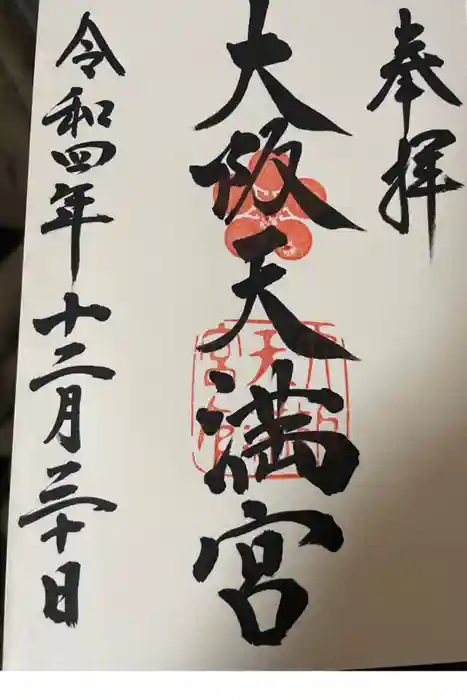 奉拝
大阪天満宮
令和四年十二月三十日